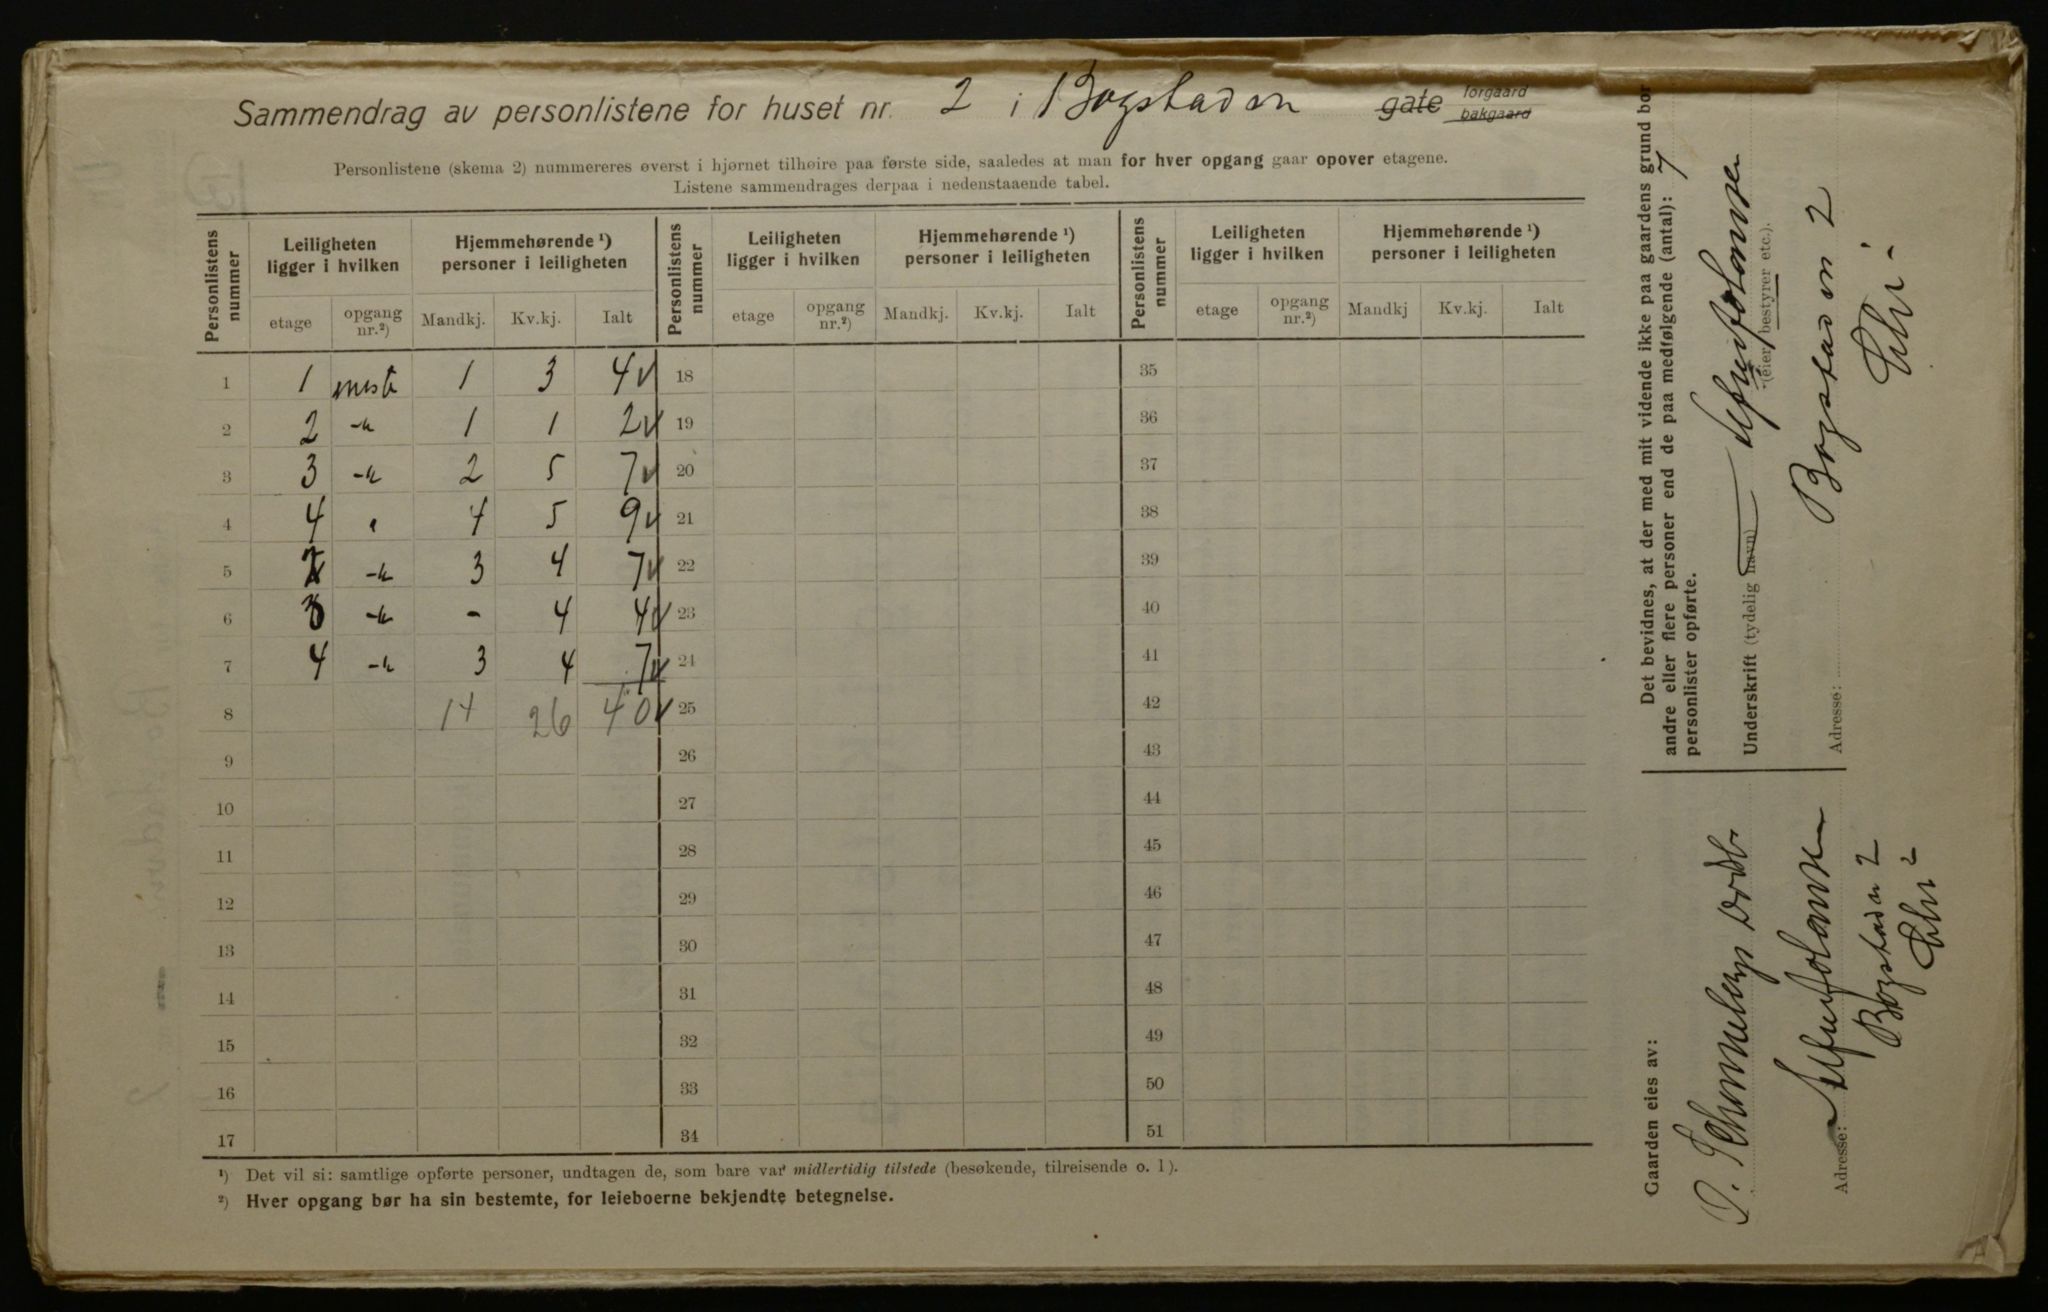 Sammendrag av personlistene for huset nr. 2 i Bogstadvn gate forgaard bakgaard
Personlistene (skema 2) nummereres øverst i hjørnet tilhøire paa første side, saaledes at man for hver opgang gaar opover etagene.
Listene sammendrages derpaa i nedenstaaende tabel.
Personlistens nummer | Leiligheten ligger i hvilken | Hjemmehørende ¹) personer i leiligheten | Personlistens nummer | Leiligheten ligger i hvilken | Hjemmehørende ¹) personer i leiligheten | Personlistens nummer | Leiligheten ligger i hvilken | Hjemmehørende ¹) personer i leiligheten
etage | opgang nr.²) | Mandkj. | Kv.kj. | Ialt | etage | opgang nr.²) | Mandkj. | Kv.kj. | Ialt | etage | opgang nr.²) | Mandkj | Kv.kj. | Ialt
1 1 1 3 4 18 35
2 2 1 1 2 19 36
3 3 2 5 7 20 37
4 4 4 5 9 21 38
5 3 4 7 22 39
6 3 - 4 4 23 40
7 4 3 4 7 24 41
8 14 26 40 25 42
9 26 43
10 27 44
11 28 45
12 29 46
13 30 47
14 31 48
15 32 49
16 33 50
17 34 51
¹) Det vil si: samtlige opførte personer, undtagen de, som bare var midlertidig tilstede (besøkende, tilreisende o. l).
²) Hver opgang bør ha sin bestemte, for leieboerne bekjendte betegnelse.
Det bevidnes, at der med mit vidende ikke paa gaardens grund bor
andre eller flere personer end de paa medfølgende (antal): 7
personlister opførte.
Underskrift (tydelig navn)
(eier, bestyrer etc.).
Adresse: Bogstadvn 2
Gaarden eies av:
Adresse:
Bogstadvn 2